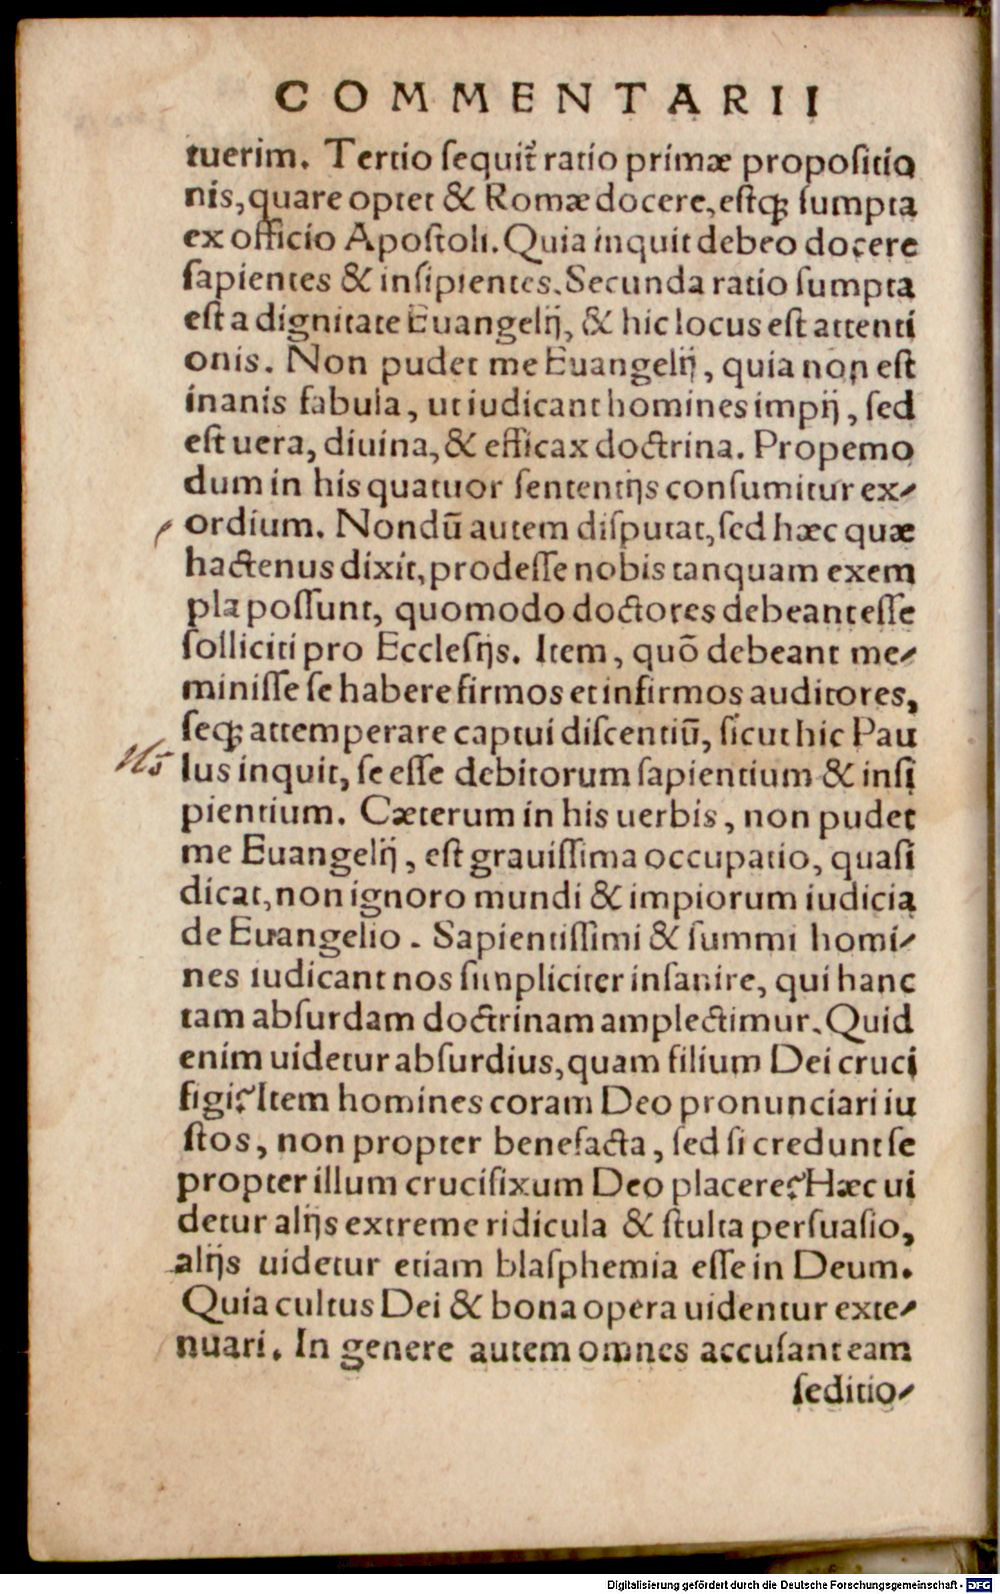 COMMENTARII
tuerim. Tertio ſequit᷑ ratio primæ propoſitio
nis, quare optet & Romæ docere, eſtq́ꝫ ſumpta
ex officio Apoſtoli. Quia inquit debeo docere
ſapientes & inſipientes. Secunda ratio ſumpta
eſt a dignitate Euangelij, & hic locus eſt attenti
onis. Non pudet me Euangelij, quia non eſt
inanis fabula, ut iudicant homines impij, ſed
eſt uera, diuina, & efficax doctrina. Propemo
dum in his quatuor ſententijs conſumitur ex⸗
ordium. Nondū autem diſputat, ſed hæc quæ
hactenus dixit, prodeſſe nobis tanquam exem
pla poſſunt, quomodo doctores debeant eſſe
ſolliciti pro Eccleſijs. Item, quō debeant me⸗
miniſſe ſe habere firmos et infirmos auditores,
ſeqꝫ attemperare captui diſcentiū, ſicut hic Pau
lus inquit, ſe eſſe debitorum ſapientium & inſi
pientium. Cæterum in his uerbis, non pudet
me Euangelij, eſt grauiſſima occupatio, quaſi
dicat, non ignoro mundi & impiorum iudicia
de Euangelio. Sapientiſſimi & ſummi homi⸗
nes iudicant nos ſimpliciter inſanire, qui hanc
tam abſurdam doctrinam amplectimur. Quid
enim uidetur abſurdius, quam filium Dei cruci
figi? Item homines coram Deo pronunciari iu
ſtos, non propter benefacta, ſed ſi credunt ſe
propter illum crucifixum Deo placere? Hæc ui
detur alijs extreme ridicula & ſtulta perſuaſio,
alijs uidetur etiam blaſphemia eſſe in Deum.
Quia cultus Dei & bona opera uidentur exte⸗
nuari. In genere autem omnes accuſant eam
ſeditio⸗
Digitalisierung gefördert durch die Deutsche Forschungsgemeinschaft - DFG